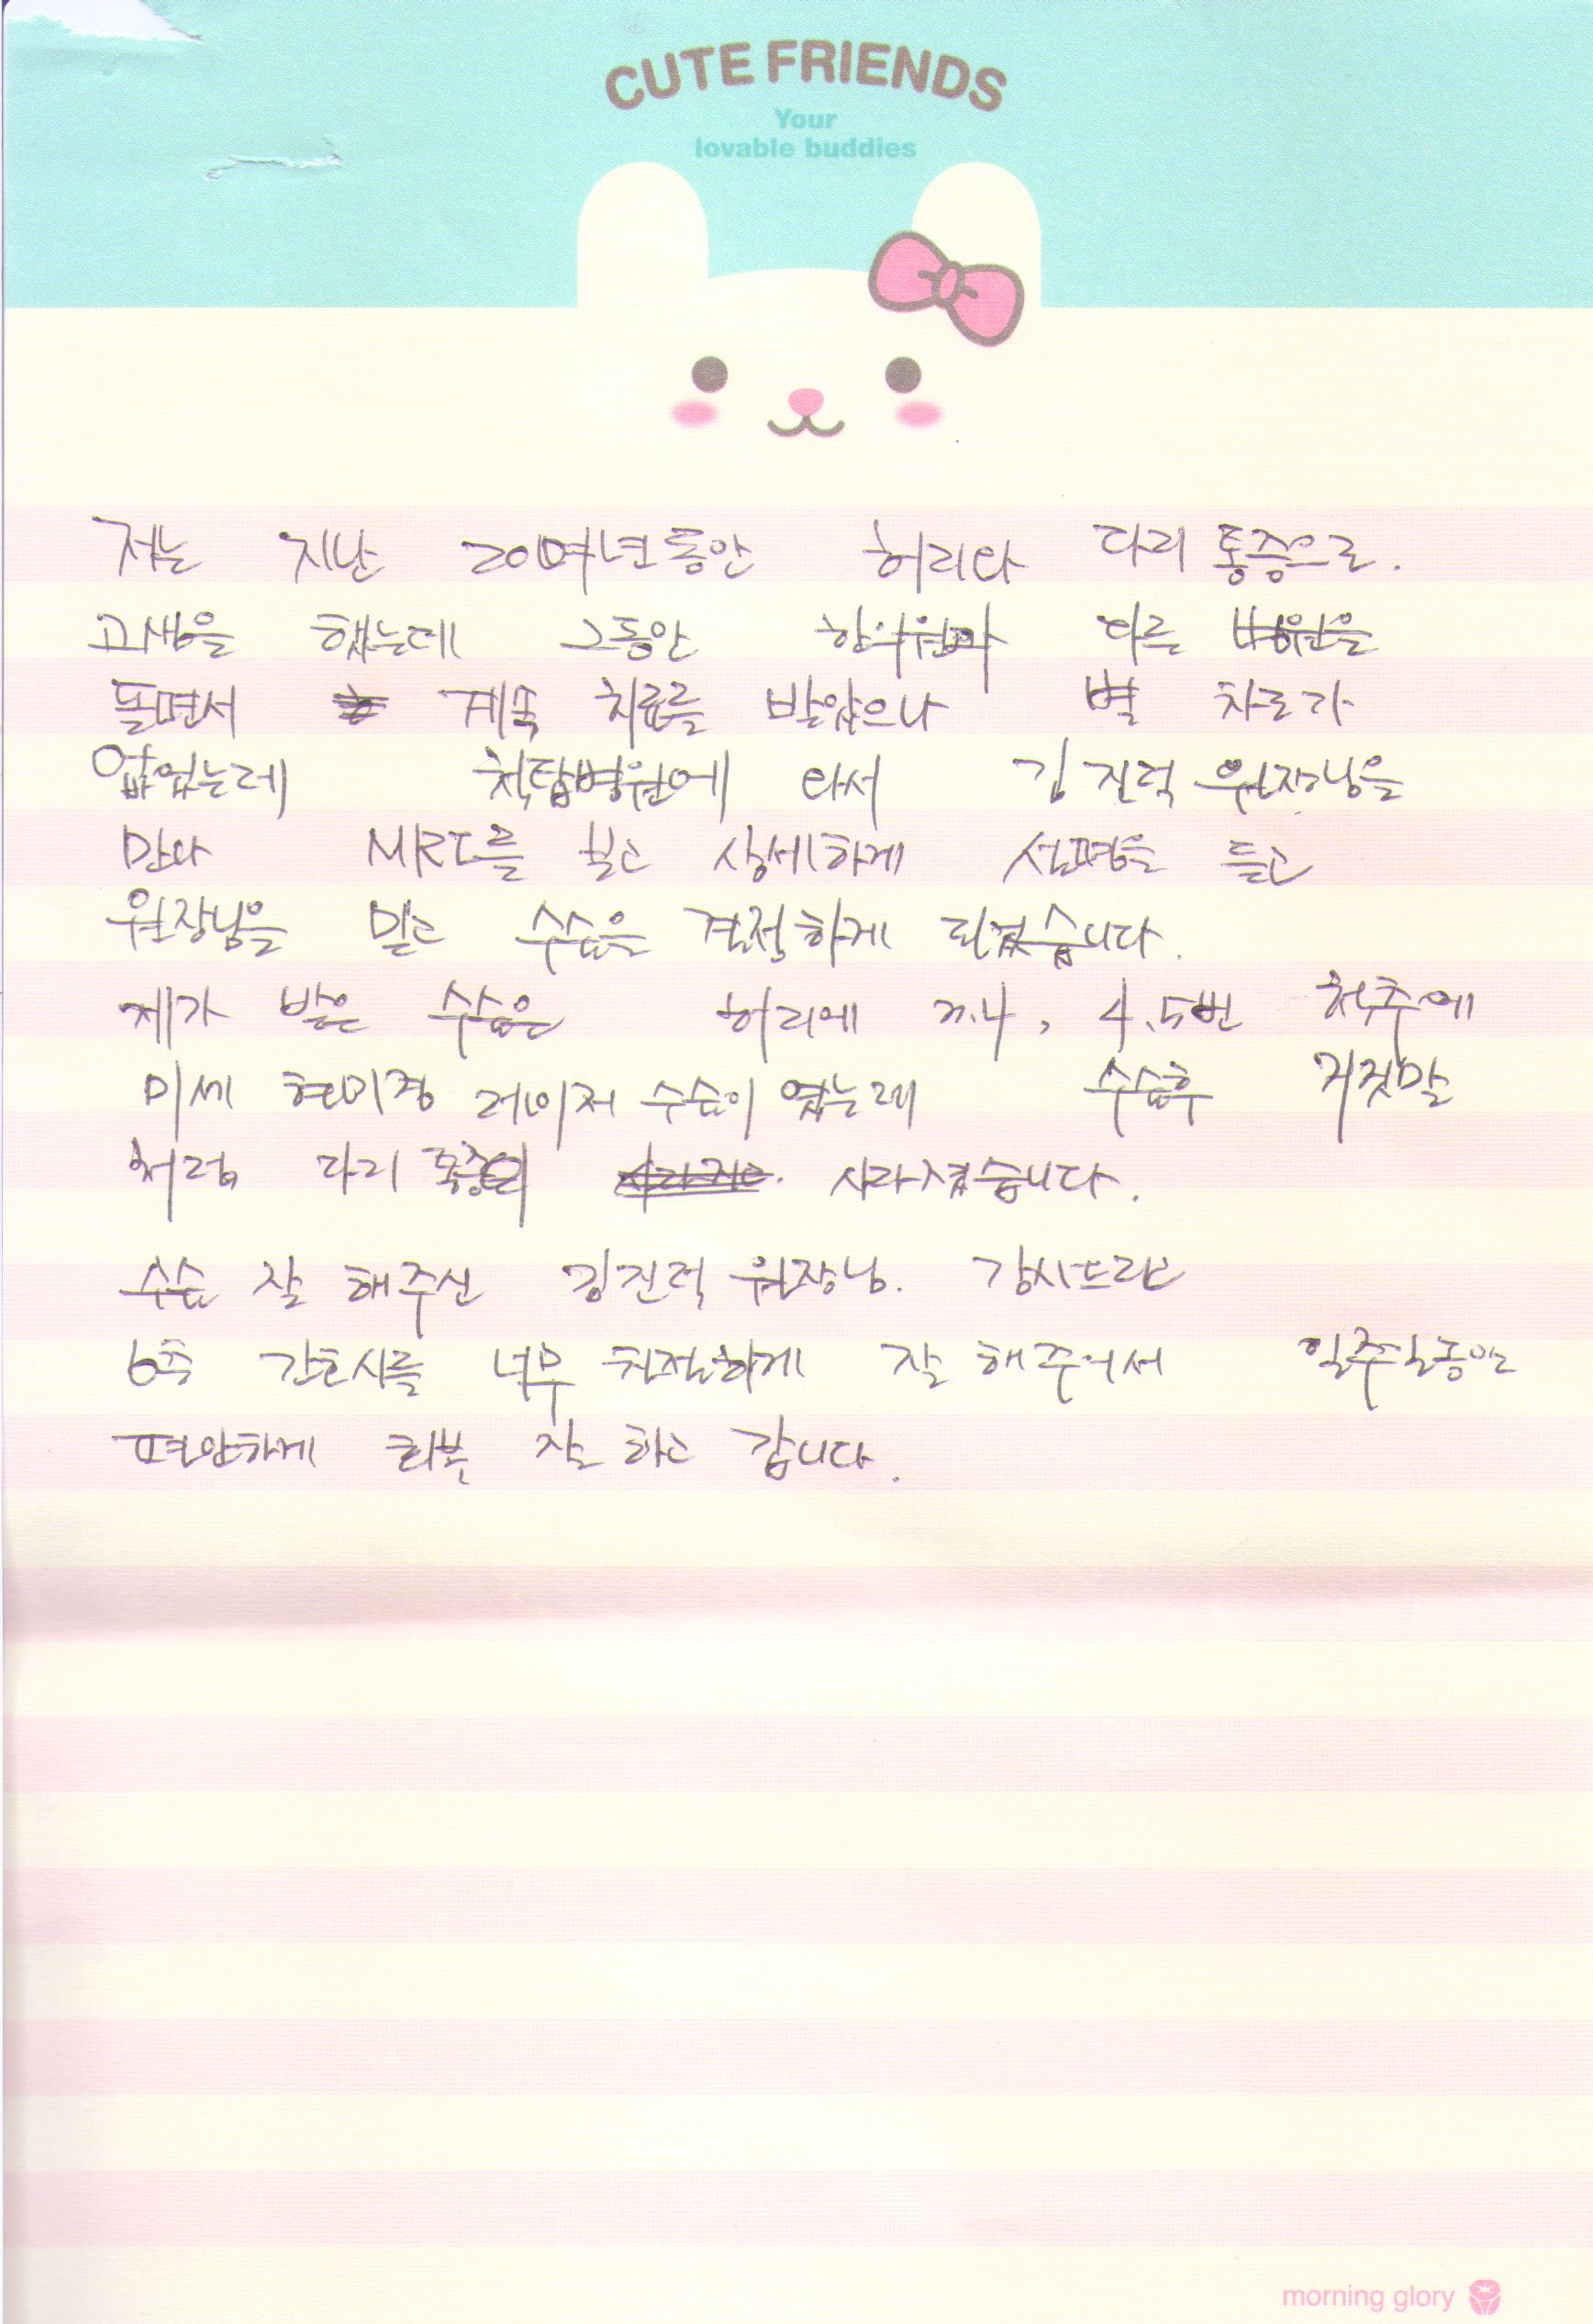 CUTE FRIENDS
Your
lovable buddies
저는 지난 20여년동안 허리와 다리 통증으로.
고생을 했는데 그동안 한의원과 다른 병원을
돌면서 계속 치료를 받았으나 별 차도가
없었는데 척탑병원에 와서 김진덕 원장님을
만나 MRI를 찍고 상세하게 설명을 듣고
원장님을 믿고 수술을 결정하게 되겠습니다.
제가 받은 수술은 허리에 3.4, 4.5번 척추에
미세 현미경 레이저 수술이 였는데 수술후 거짓말
처럼 다리 통증이 사라졌습니다.
수술 잘 해주신 김진덕 원장님. 감사드리고
6층 간호사를 너무 친절하게 잘 해주어서 일주일동안
편안하게 회복 잘 하고 갑니다.
morning glory